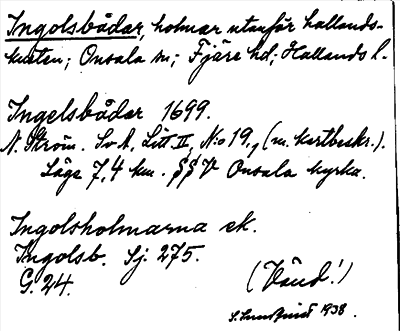 Ingolsbådar, holmar utanför hallands-
kusten; Onsala sn; Fjäre hd; Hallands l.
Ingelsbådar 1699.
N. Ström. SvA, Litt II, N:o 19, (m. kartbeskr.).
Läge 7,4 km. SSV Onsala kyrka.
Ingolsholmarna ek.
Ingolsb. Sj. 275.
G. 24.
(Vänd!)
1938.